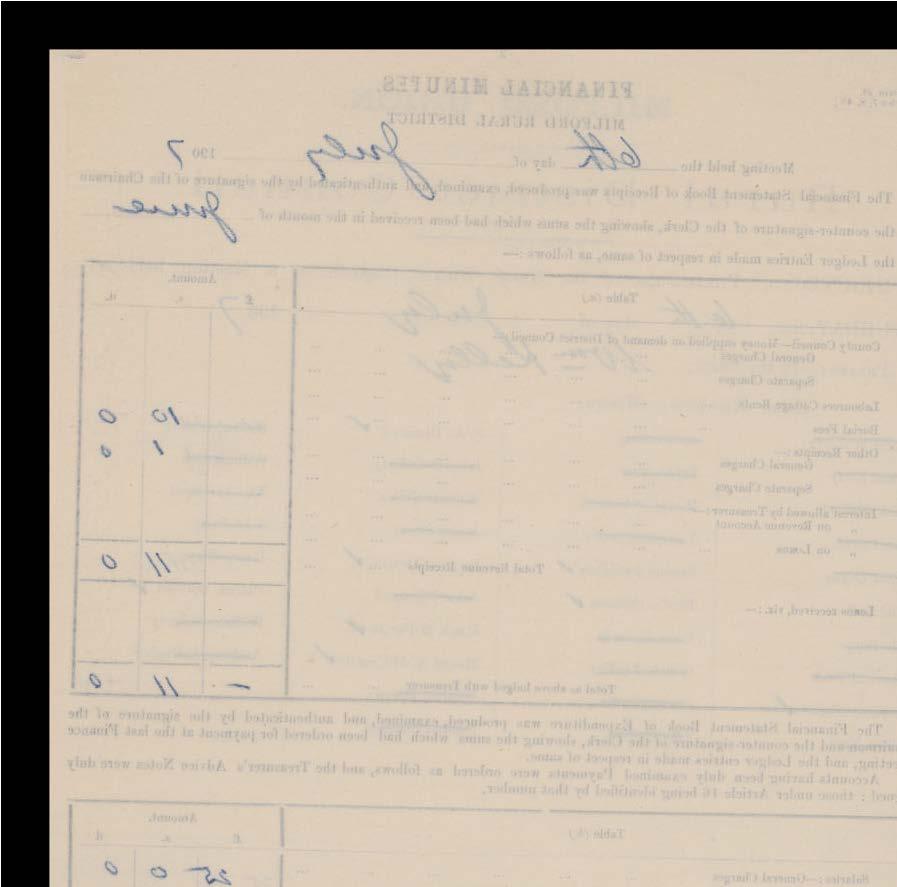 FINANCIAL MINUTES.
MILFORD RURAL DISTRICT.
Meeting held the 6th day of July 1907
The Financial Statement Book of Receipts was produced, examined, and authenticated by the signature of the Chairman
the counter-signature of the Clerk, showing the sums which had been received in the month of June
the Ledger Entries made in respect of same, as follows :—
Table (a.) Amount.
£ s. d.
County Council—Money supplied on demand of District Council:—
General Charges
Separate Charges
Labourers Cottage Rents 10 0
Burial Fees 1 0
Other Receipts :—
General Charges
Separate Charges
Interest allowed by Treasurer :—
„ on Revenue Account
„ on Loans
Total Revenue Receipts 11 0
Loans received, viz. :—
Total as above lodged with Treasurer — 11 0
The Financial Statement Book of Expenditure was produced, examined, and authenticated by the signature of the
and the counter-signature of the Clerk, showing the sums which had been ordered for payment at the last Finance
and the Ledger entries made in respect of same.
Accounts having been duly examined Payments were ordered as follows, and the Treasurer's Advice Notes were duly
: those under Article 16 being identified by that number.
Table (b.) Amount.
£ s. d.
Salaries :—General Charges 25 0 0